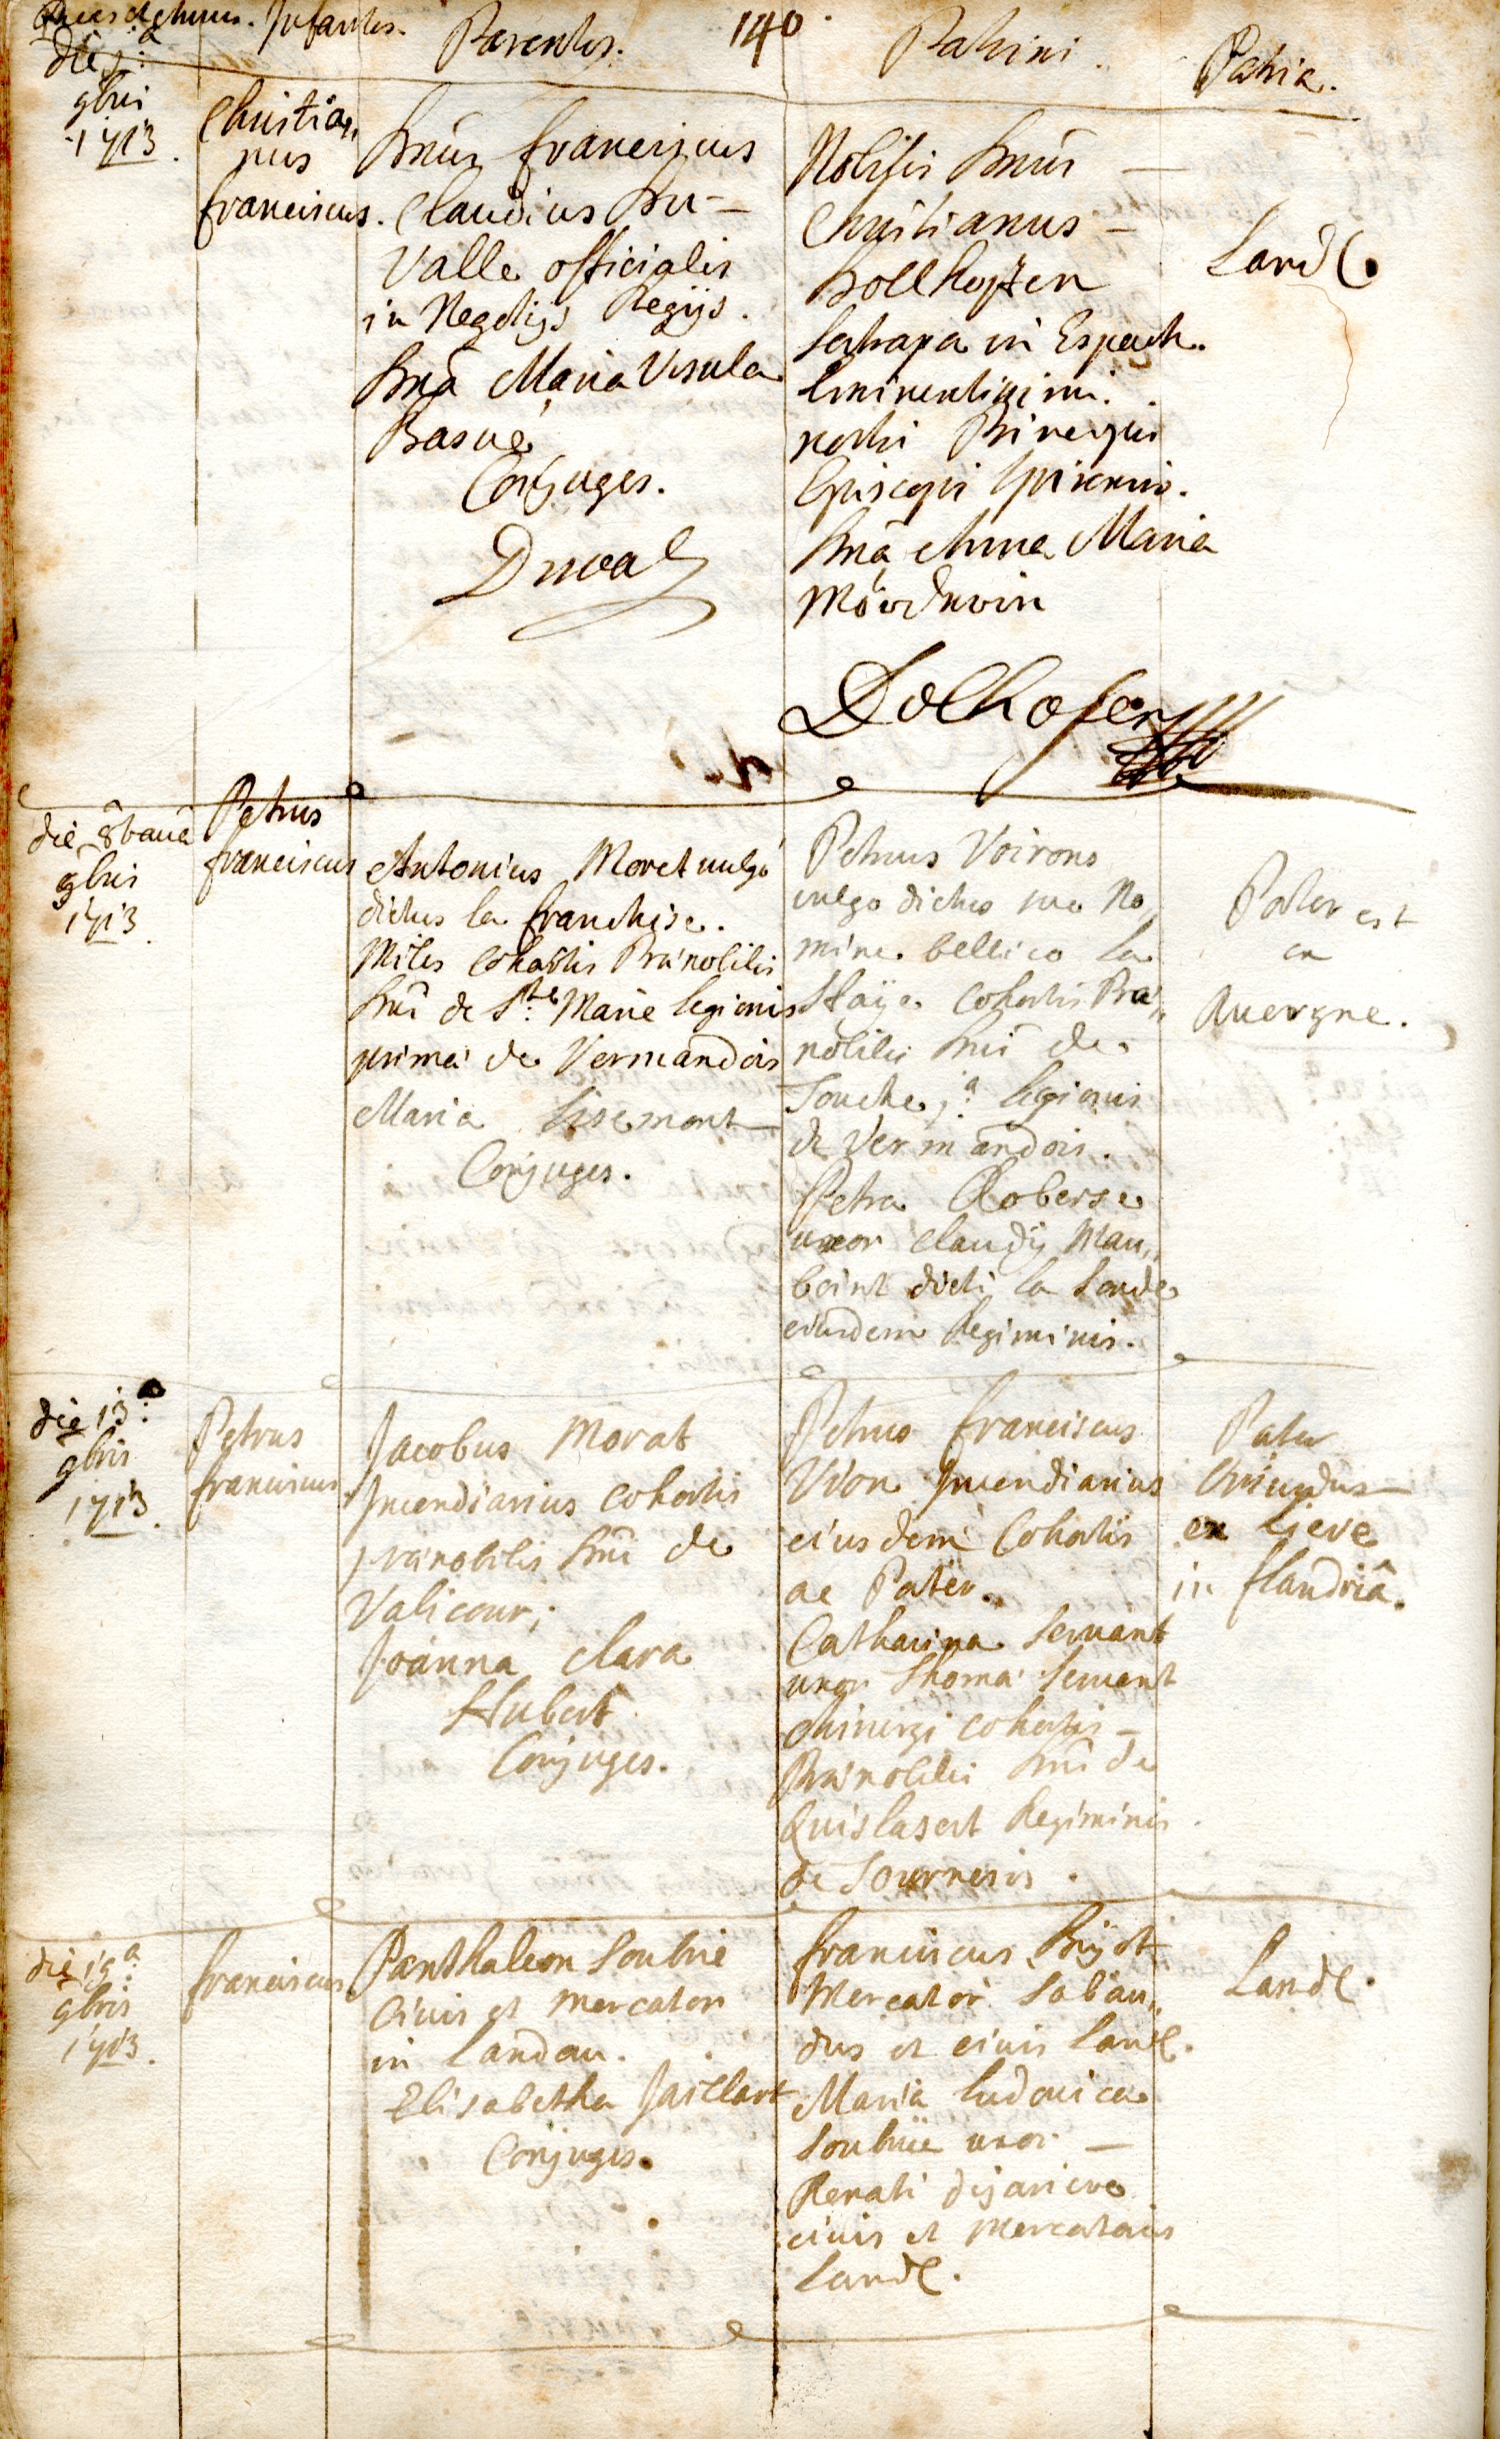 Dies et
Infantes.
Parentes.
140
Patrini.
Patria.
die 1:a
9bris
1713.
Christia„
nus
franciscus.
Dnus franciscus
Claudius Du-
Valle officialis
in Negotijs Regijs.
Dna Maria Ursula
Basue
Conjuges.
Duval
Nobilis Dnus
Christianus
Dollhopffen
Satrapa in Espach.
Eminentissimi
nostri Principis
Episcopi Spirensis.
Dna Anna Maria
Dolhofen
Land.
die 8bava
9bris
1713.
Petrus
franciscus
Antonius Moret vulgo
dictus la franchise.
Miles cohortis Prænobilis
Dni de Ste Marie legionis
primæ de Vermandois
Maria Lisemont
Conjuges.
Petrus Voirons
vulgo dictus suo No„
mine bellico la
Haÿe cohortis Præ„
nobilis Dni de
Souche, 1a legionis
de Vermandois.
Petra Roberse
uxor Claudij Mau„
boint dicti la Londe
eiusdem Regiminis.
Pater est
ex
Auergne.
die 13:a
9bris
1713.
Petrus
franciscus
Jacobus Morat
Incendiarius cohortis
prænobilis Dni de
Valicour;
Joanna Clara
Hubert
Conjuges.
Petrus franciscus
Vion Incendiarius
eiusdem Cohortis
ac Pater.
Catharina Seruant
uxor Thomæ Seruant
chirurgi cohortis
Prænobilis Dni de
Quislasert Regiminis
de Tournesis.
Pater
Oriundus
ex Lieve
in flandriâ.
die 19a:
9bris
1713.
franciscus
Panthaleon Soubrie
Ciuis et mercator
in Landau.
Elisabetha Jaillart
Conjuges.
franciscus Bigot
Mercator Sabau„
dus et ciuis Land.
Maria Ludouica
Soubrie uxor
Renati
ciuis et Mercatoris
Land.
Land.